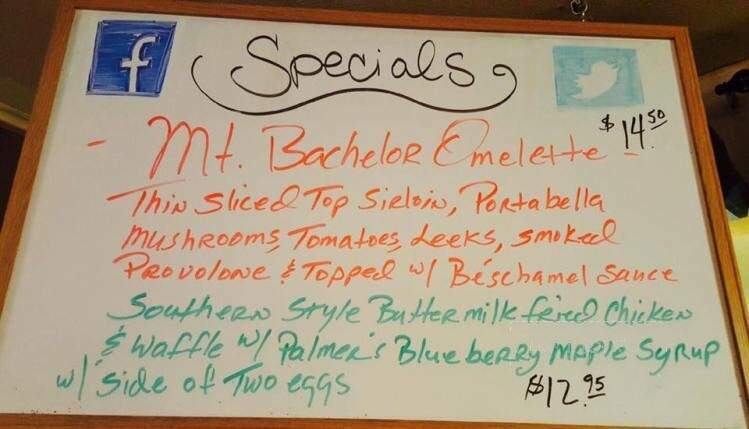 f
Specials
- Mt. Bachelor Omelette $14.50
Thin Sliced Top Sirloin, Portabella
Mushrooms, Tomatoes, Leeks, smoked
Provolone & Topped w/ Béschamel Sauce
Southern Style Buttermilk fried Chicken
& Waffle w/ Palmer's Blueberry Maple Syrup
w/ side of Two eggs $12.95